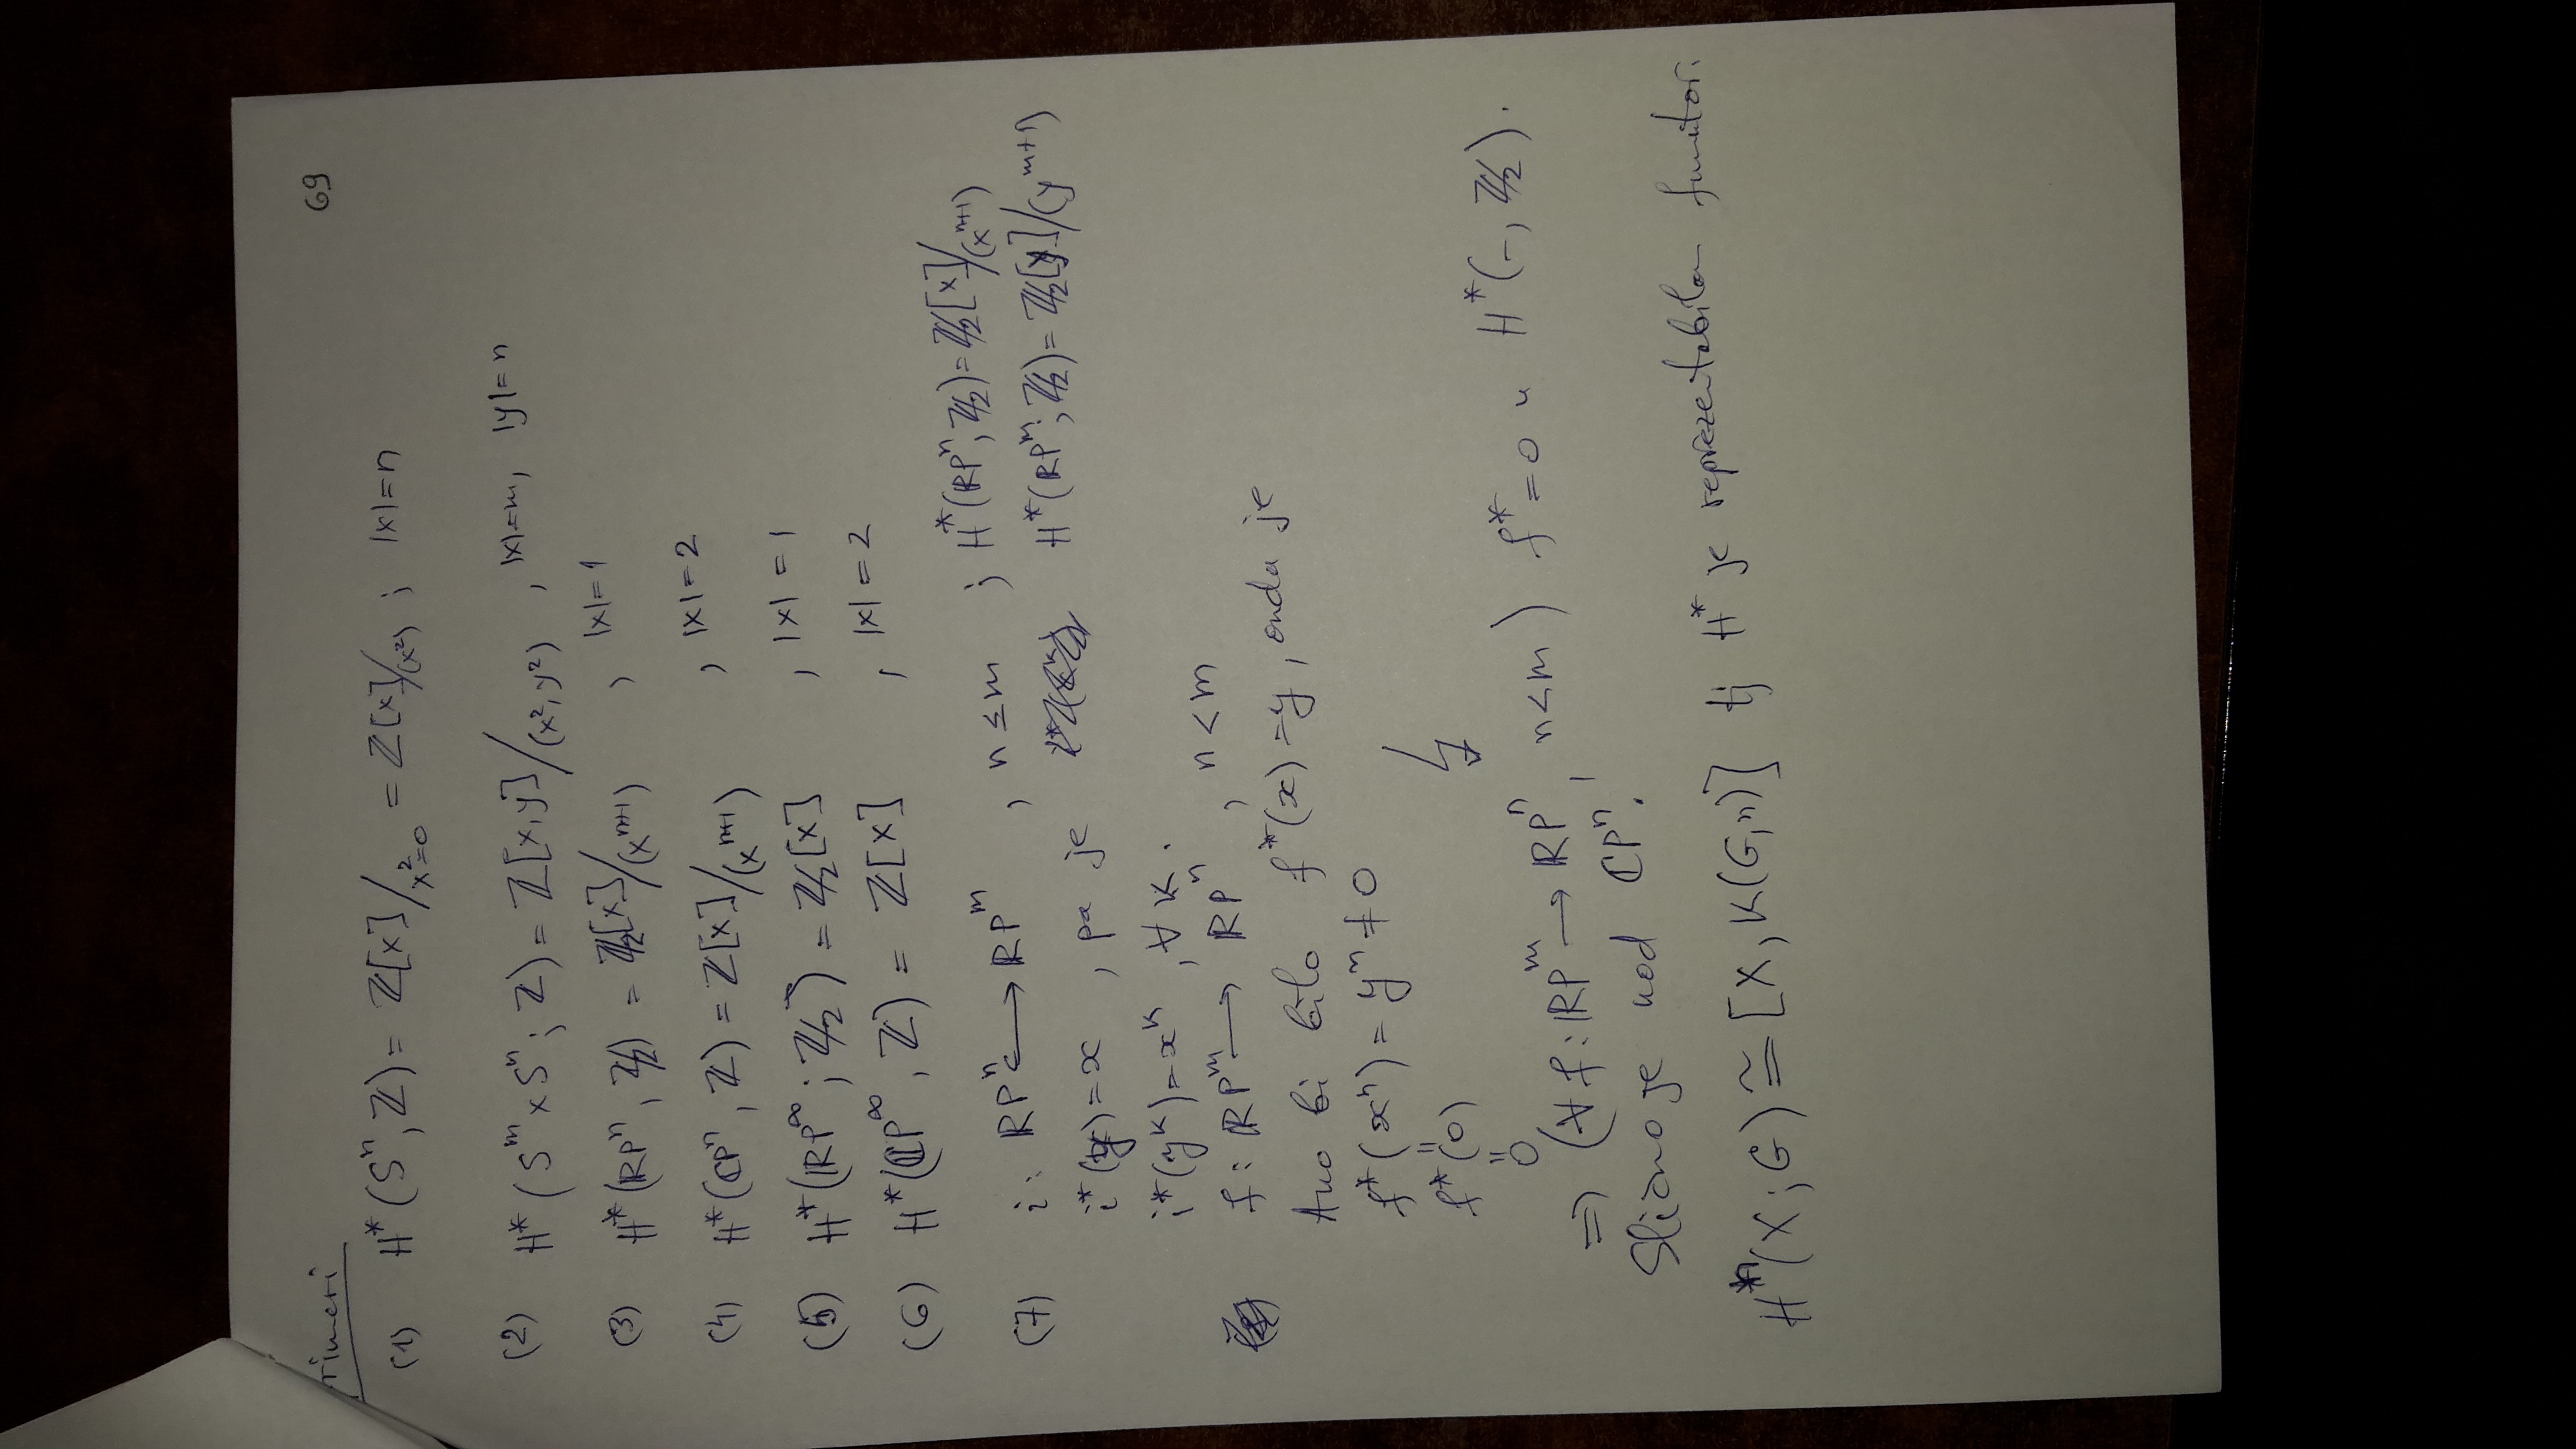 69
rimeri
(1) H*(Sⁿ, ℤ) = ℤ[x]/x²=0 = ℤ[x]/(x²) ; |x|=n
(2) H*(Sᵐ×Sⁿ; ℤ) = ℤ[x,y]/(x²,y²) , |x|=m, |y|=n
(3) H*(ℝPⁿ, ℤ₂) = ℤ₂[x]/(xⁿ⁺¹) , |x|=1
(4) H*(ℂPⁿ, ℤ) = ℤ[x]/(xⁿ⁺¹) , |x|=2
(5) H*(ℝP^∞; ℤ₂) = ℤ₂[x] , |x|=1
(6) H*(ℂP^∞, ℤ) = ℤ[x] , |x|=2
(7) i: ℝPⁿ ↪ ℝPᵐ , n≤m ; H*(ℝPⁿ; ℤ₂) = ℤ₂[x]/(xⁿ⁺¹)
i*(y)=x , pa je H*(ℝPᵐ; ℤ₂) = ℤ₂[y]/(yᵐ⁺¹)
i*(yᵏ)=xᵏ , ∀k.
f: ℝPᵐ → ℝPⁿ , n<m
Ako bi bilo f*(x)=y, onda je
f*(xᵐ) = yᵐ ≠ 0
"
f*(0)
"
0
⇒ (∀ f: ℝPᵐ → ℝPⁿ, n<m) f*=0 u H*(-, ℤ₂).
Slično je kod ℂPⁿ.
Hⁿ(X; G) ≅ [X, K(G,n)] tj H* je reprezentabilan funktor.